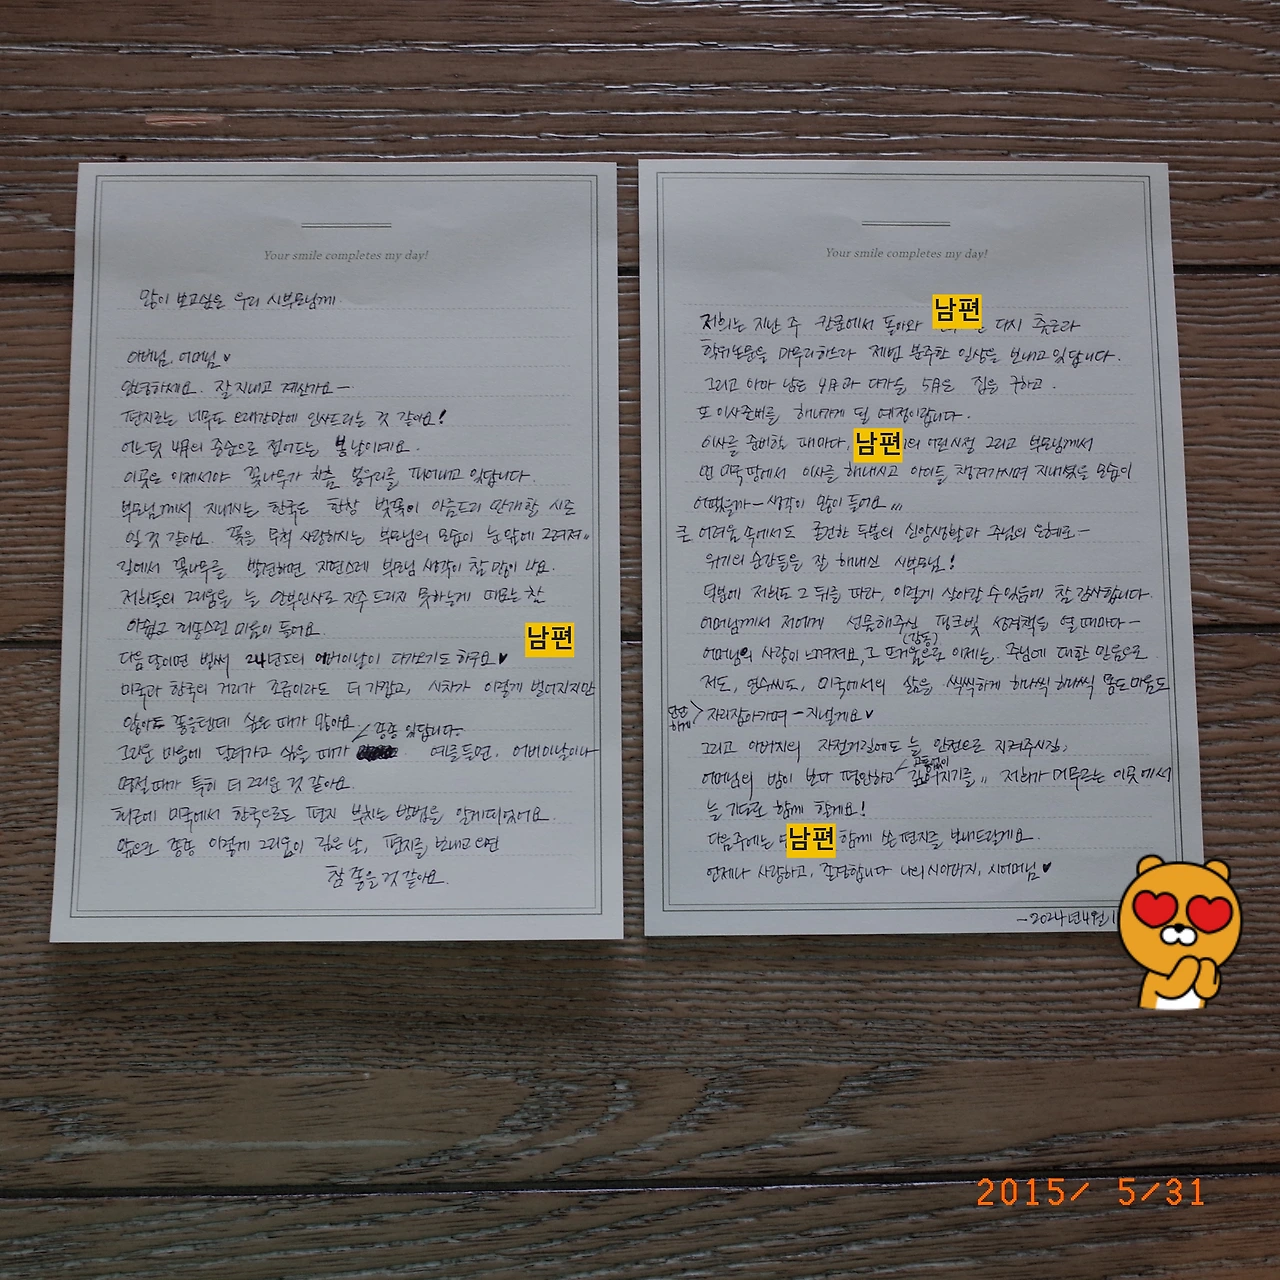 Your smile completes my day!
많이 보고싶은 우리 시부모님께.
아버님, 어머님♥
안녕하세요. 잘 지내고 계신가요—
편지로는 너무도 오래간만에 인사드리는 것 같아요!
어느덧 4月의 중순으로 접어드는 봄날이에요.
이곳은 이제서야 꽃나무가 차츰 봉우리를 피어내고 있답니다.
부모님께서 지내시는 한국은 한창 벚꽃이 아름드리 만개할 시즌
일 것 같아요. 꽃을 무척 사랑하시는 부모님의 모습이 눈 앞에 그려져〃
길에서 꽃나무를 발견하면 자연스레 부모님 생각이 참 많이 나요.
저희들의 그리움을 늘 안부인사로 자주 드리지 못하는게 때로는 참
아쉽고 죄송스런 마음이 들어요.
남편
다음 달이면 벌써 24년도의 어버이날이 다가오기도 하구요♥
미국과 한국의 거리가 조금이라도 더 가깝고, 시차가 이렇게 벌어지지만
않아도 좋을텐데 싶은 때가 많아요.
그리운 마음에 달려가고 싶을 때가 종종 있답니다. 예를들면, 어버이날이나
명절 때가 특히 더 그리운 것 같아요.
최근에 미국에서 한국으로도 편지 부치는 방법을 알게되었어요.
앞으로 종종 이렇게 그리움이 깊은 날, 편지를 보내고 하면
참 좋을 것 같아요.
Your smile completes my day!
저희는 지난 주 칸쿤에서 돌아와 남편 다시 출근과
학위논문을 마무리하느라 제법 분주한 일상을 보내고 있답니다.
그리고 아마 남은 4月과 다가올 5月은 집을 구하고.
또 이사준비를 해나가게 될 예정이랍니다.
이사를 준비할 때마다, 남편의 어린시절 그리고 부모님께서
먼 미국 땅에서 이사를 해내시고 아이들 챙겨가시며 지내셨을 모습이
어땠을까—생각이 많이 들어요
큰 어려움 속에서도 굳건한 두분의 신앙생활과 주님의 은혜로—
위기의 순간들을 잘 해내신 시부모님!
덕분에 저희도 그 뒤를 따라, 이렇게 살아갈 수 있음에 참 감사합니다.
어머님께서 저에게 선물해주신 핑크빛 성경책을 열 때마다—
어머님의 사랑이 느껴져요, 그 (감동) 이제는, 주님에 대한 믿음으로
저도, 미국에서의 삶을 씩씩하게 하나씩 하나씩 몸도마음도
단단하게 자리잡아가며 — 지낼게요♥
그리고 아버지의 자전거길에도 늘 안전으로 지켜주시길,
어머님의 밤이 보다 평안하고 고통없이 깊어지기를〃 저희가 머무르는 이곳에서
늘 기도로 함께 할게요!
다음주에는 남편 함께 쓴 편지를 보내드릴게요.
언제나 사랑하고, 존경합니다 나의 시아버지, 시어머님♥
—2024년 4월 1
2015/ 5/31